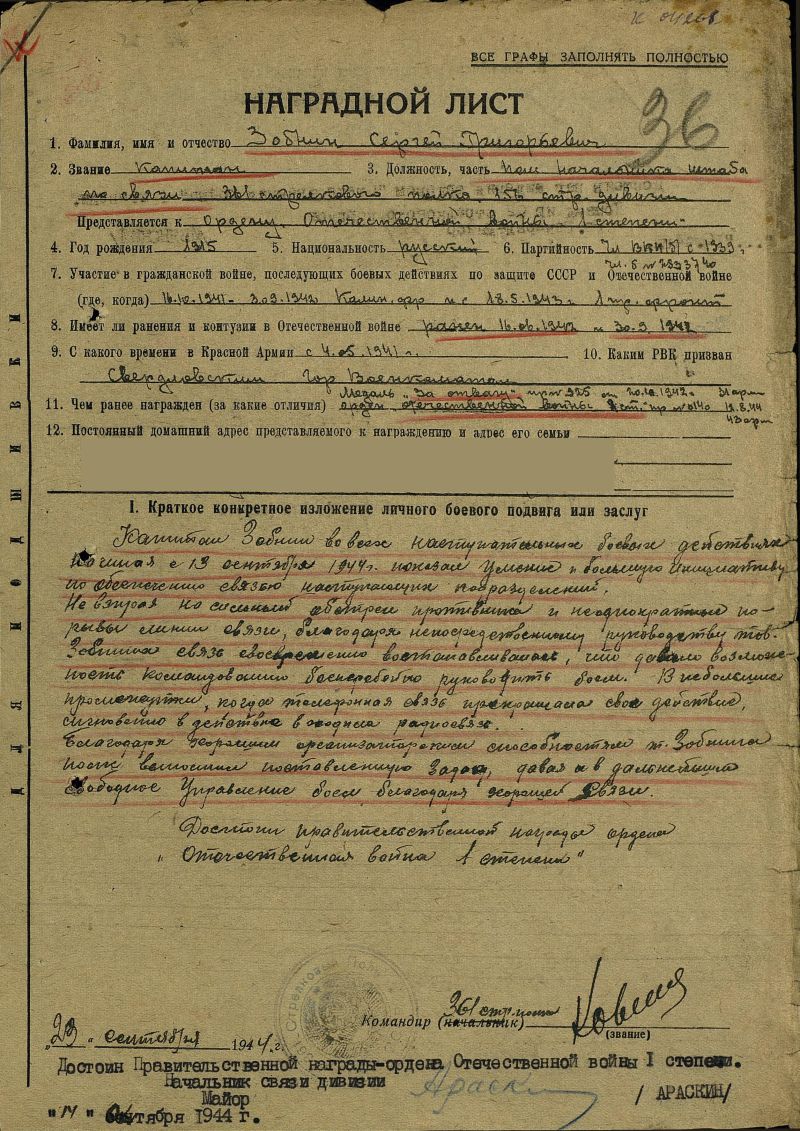 ВСЕ ГРАФЫ ЗАПОЛНЯТЬ ПОЛНОСТЬЮ
36
НАГРАДНОЙ ЛИСТ
1. Фамилия, имя и отчество Зобнин Сергей Григорьевич
2. Звание Капитан 3. Должность, часть пом. начальника штаба
по связи 361 стрелкового полка 156 стр. дивизии
Представляется к Ордену Отечественной войны 1 степени
4. Год рождения 1915 5. Национальность русский 6. Партийность Чл. ВКП(б) с 1939 г.
чл. б. № 2833740
7. Участие в гражданской войне, последующих боевых действиях по защите СССР и Отечественной войне
(где, когда) 16.10.1941 - 30.9.1942 Калин. фр и с 18.5.1943 г. 1 пр. фронт
8. Имеет ли ранения и контузии в Отечественной войне ранен 16.06.1942 и 30.9.1942
9. С какого времени в Красной Армии с 4.05.1941 г. 10. Каким РВК призван
Свердловским Гор Военкоматом
Медаль "За отвагу" пр № 925 от 20.10.1942 31 арм
11. Чем ранее награжден (за какие отличия) орден отечественной войны 2 ст." пр № 0140 12.8.44
43 арм
12. Постоянный домашний адрес представляемого к награждению и адрес его семьи
I. Краткое конкретное изложение личного боевого подвига или заслуг
Капитан Зобнин во всех наступательных боевых действиях
начиная с 13 сентября 1944 г. показал умение и большую инициативу
по обеспечению связью наступающих подразделений.
Не взирая на сильный обстрел противника и неоднократные по-
рывы линии связи, благодаря непосредственному руководству тов.
Зобнина связь своевременно восстанавливалась, что давало возмож-
ность командованию бесперебойно руководить боем. В небольшие
промежутки, когда телефонная связь прекращала свое действие,
мгновенно в действие входила радиосвязь.
Благодаря хорошим организаторским способностям т. Зобнина
полк выполнил поставленную задачу, давая и в дальнейшем
свободное Управление боем благодаря хорошей связи.
Достоин правительственной награды ордена
"Отечественная война 1 степени"
361 стр. полка
Командир (начальник)
(звание)
"23" сентября 1944 г.
Достоин Правительственной награды-ордена Отечественной войны I степени.
Начальник связи дивизии
Майор Араскин /АРАСКИН/
"14" октября 1944 г.
ДЛЯ ПОДШИВКИ